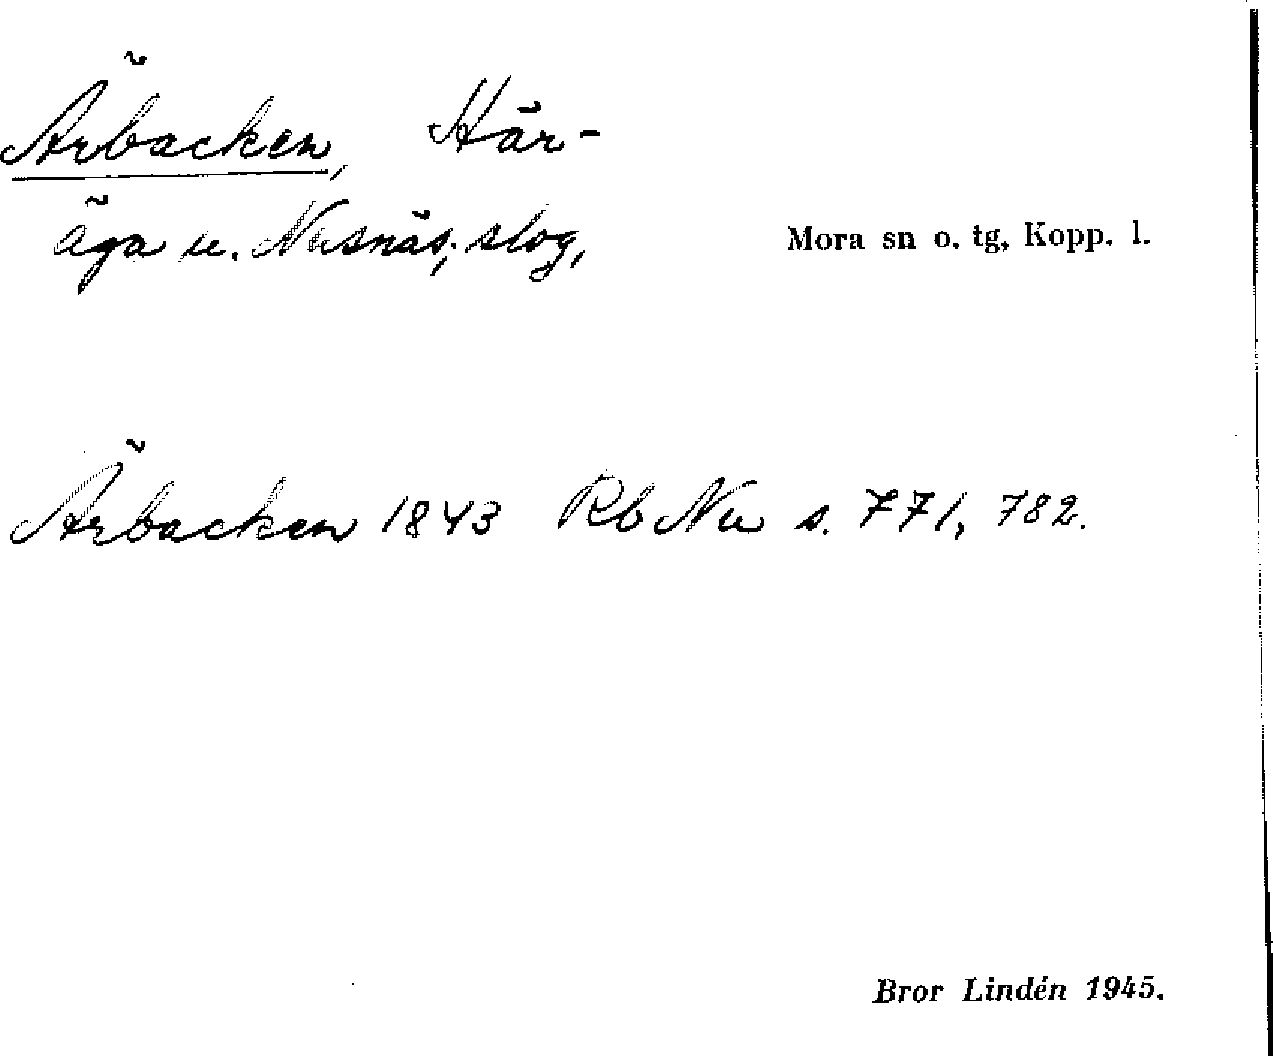 Ärbacken, Här-
äga u. Nusnäs, slog,
Mora sn o. tg, Kopp. l.
Ärbacken 1843 Rb Nu s. 771, 782.
Bror Lindén 1945.